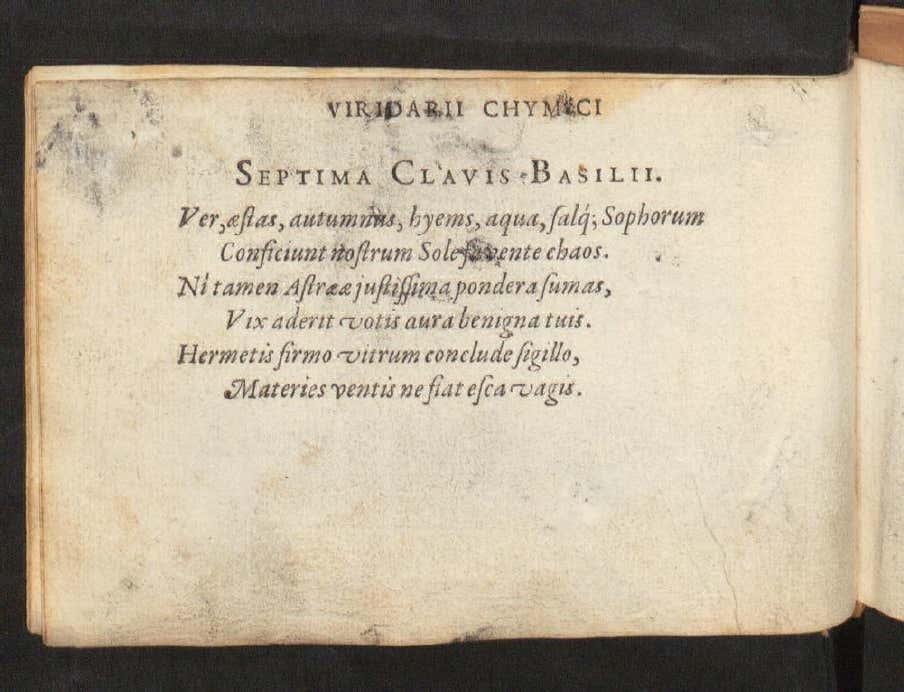 VIRIDARII CHYMICI
SEPTIMA CLAVIS BASILII.
Ver, æſtas, autumnus, hyems, aqua, ſalq́; Sophorum
Conficiunt noſtrum Sole favente chaos.
Ni tamen Aſtrææ juſtiſſima pondera ſumas,
Vix aderit votis aura benigna tuis.
Hermetis firmo vitrum conclude ſigillo,
Materies ventis ne fiat eſca vagis.